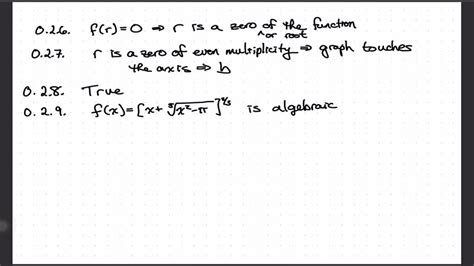 0.2.6. f(r)=0 ⇒ r is a zero of the function
^ or root
0.2.7. r is a zero of even multiplicity ⇒ graph touches
the axis ⇒ b
0.2.8. True
0.2.9. f(x)=[x+ ∛(x²-π) ] is algebraic